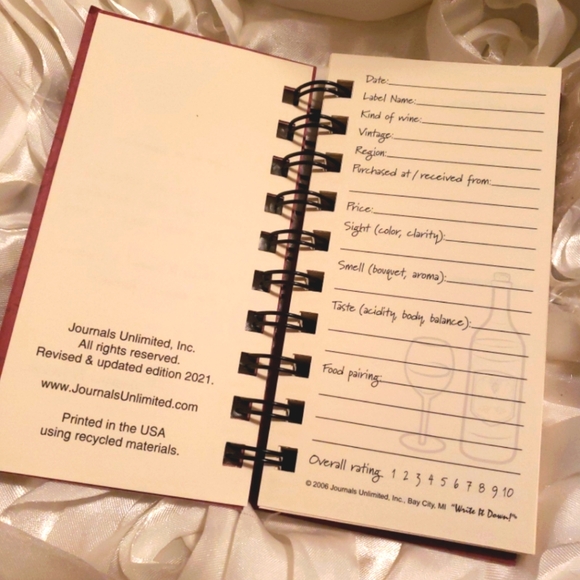 Journals Unlimited, Inc.
All rights reserved.
Revised & updated edition 2021.
www.JournalsUnlimited.com
Printed in the USA
using recycled materials.
Date:
Label Name:
Kind of wine:
Vintage:
Region:
Purchased at / received from:
Price:
Sight (color, clarity):
Smell (bouquet, aroma):
Taste (acidity, body, balance):
Food pairing:
Overall rating 1 2 3 4 5 6 7 8 9 10
© 2006 Journals Unlimited, Inc., Bay City, MI "Write It Down!"